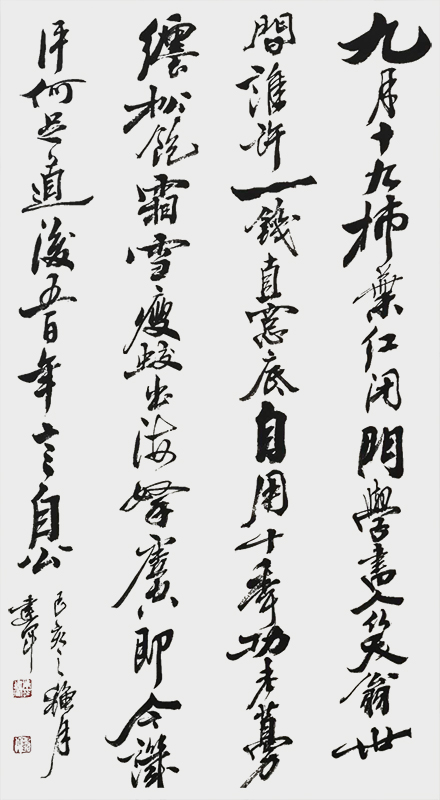 九月十九柿葉红闭門學書人笑翁世
間誰許一錢直窓底自用十年功老蔓
纏松飽霜雪瘦蛟出海拏虛即今譏
評何足道後五百年言自公
己亥之穐月
建軍